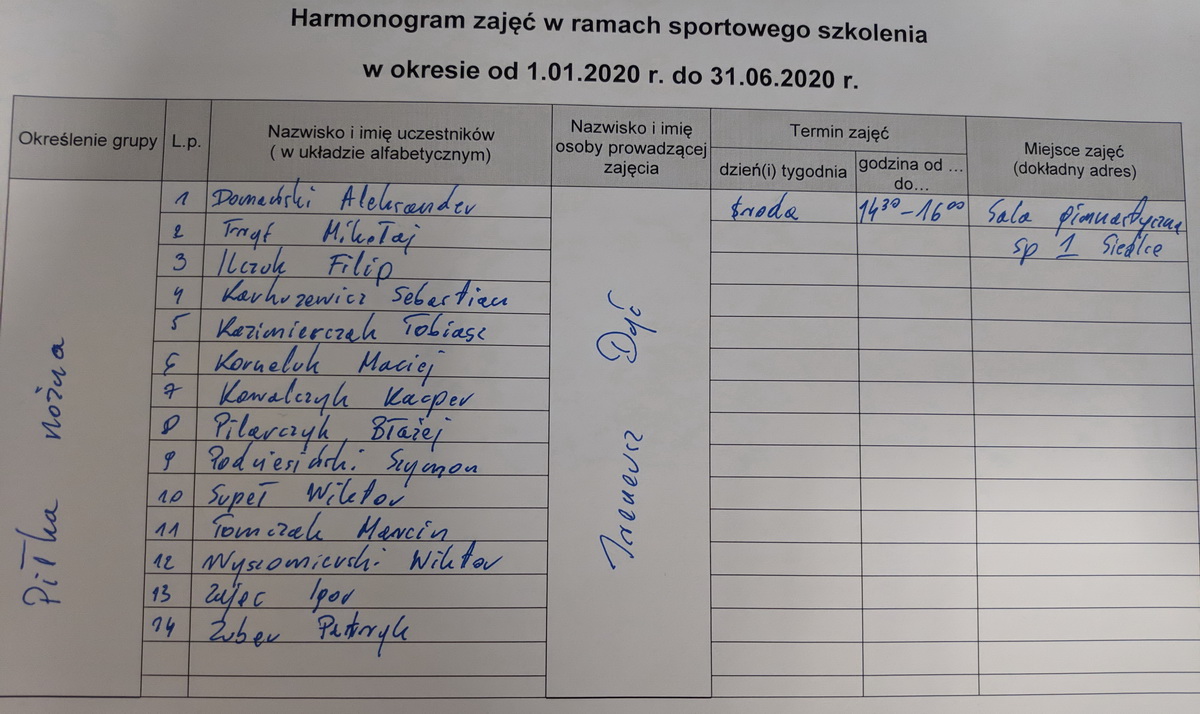 Harmonogram zajęć w ramach sportowego szkolenia
w okresie od 1.01.2020 r. do 31.06.2020 r.
Określenie grupy
L.p.
Nazwisko i imię uczestników
( w układzie alfabetycznym)
Nazwisko i imię
osoby prowadzącej
zajęcia
Termin zajęć
dzień(i) tygodnia
godzina od ...
do...
Miejsce zajęć
(dokładny adres)
Piłka nożna
1 Domański Aleksander
2 Mikołaj
3 Ilczuk Filip
4 Sebastian
5 Kazimierczak Tobiasz
6 Korneluk Maciej
7 Kowalczyk Kacper
8 Pilarczyk Błażej
9 Podniesiński Szymon
10 Supeł Wiktor
11 Tomczak Marcin
12 Wyszomierski Wiktor
13 Zając Igor
14 Zuber Patryk
Ireneusz
środa
14 30 - 16 00
Sala gimnastyczna
sp 1 Siedlce